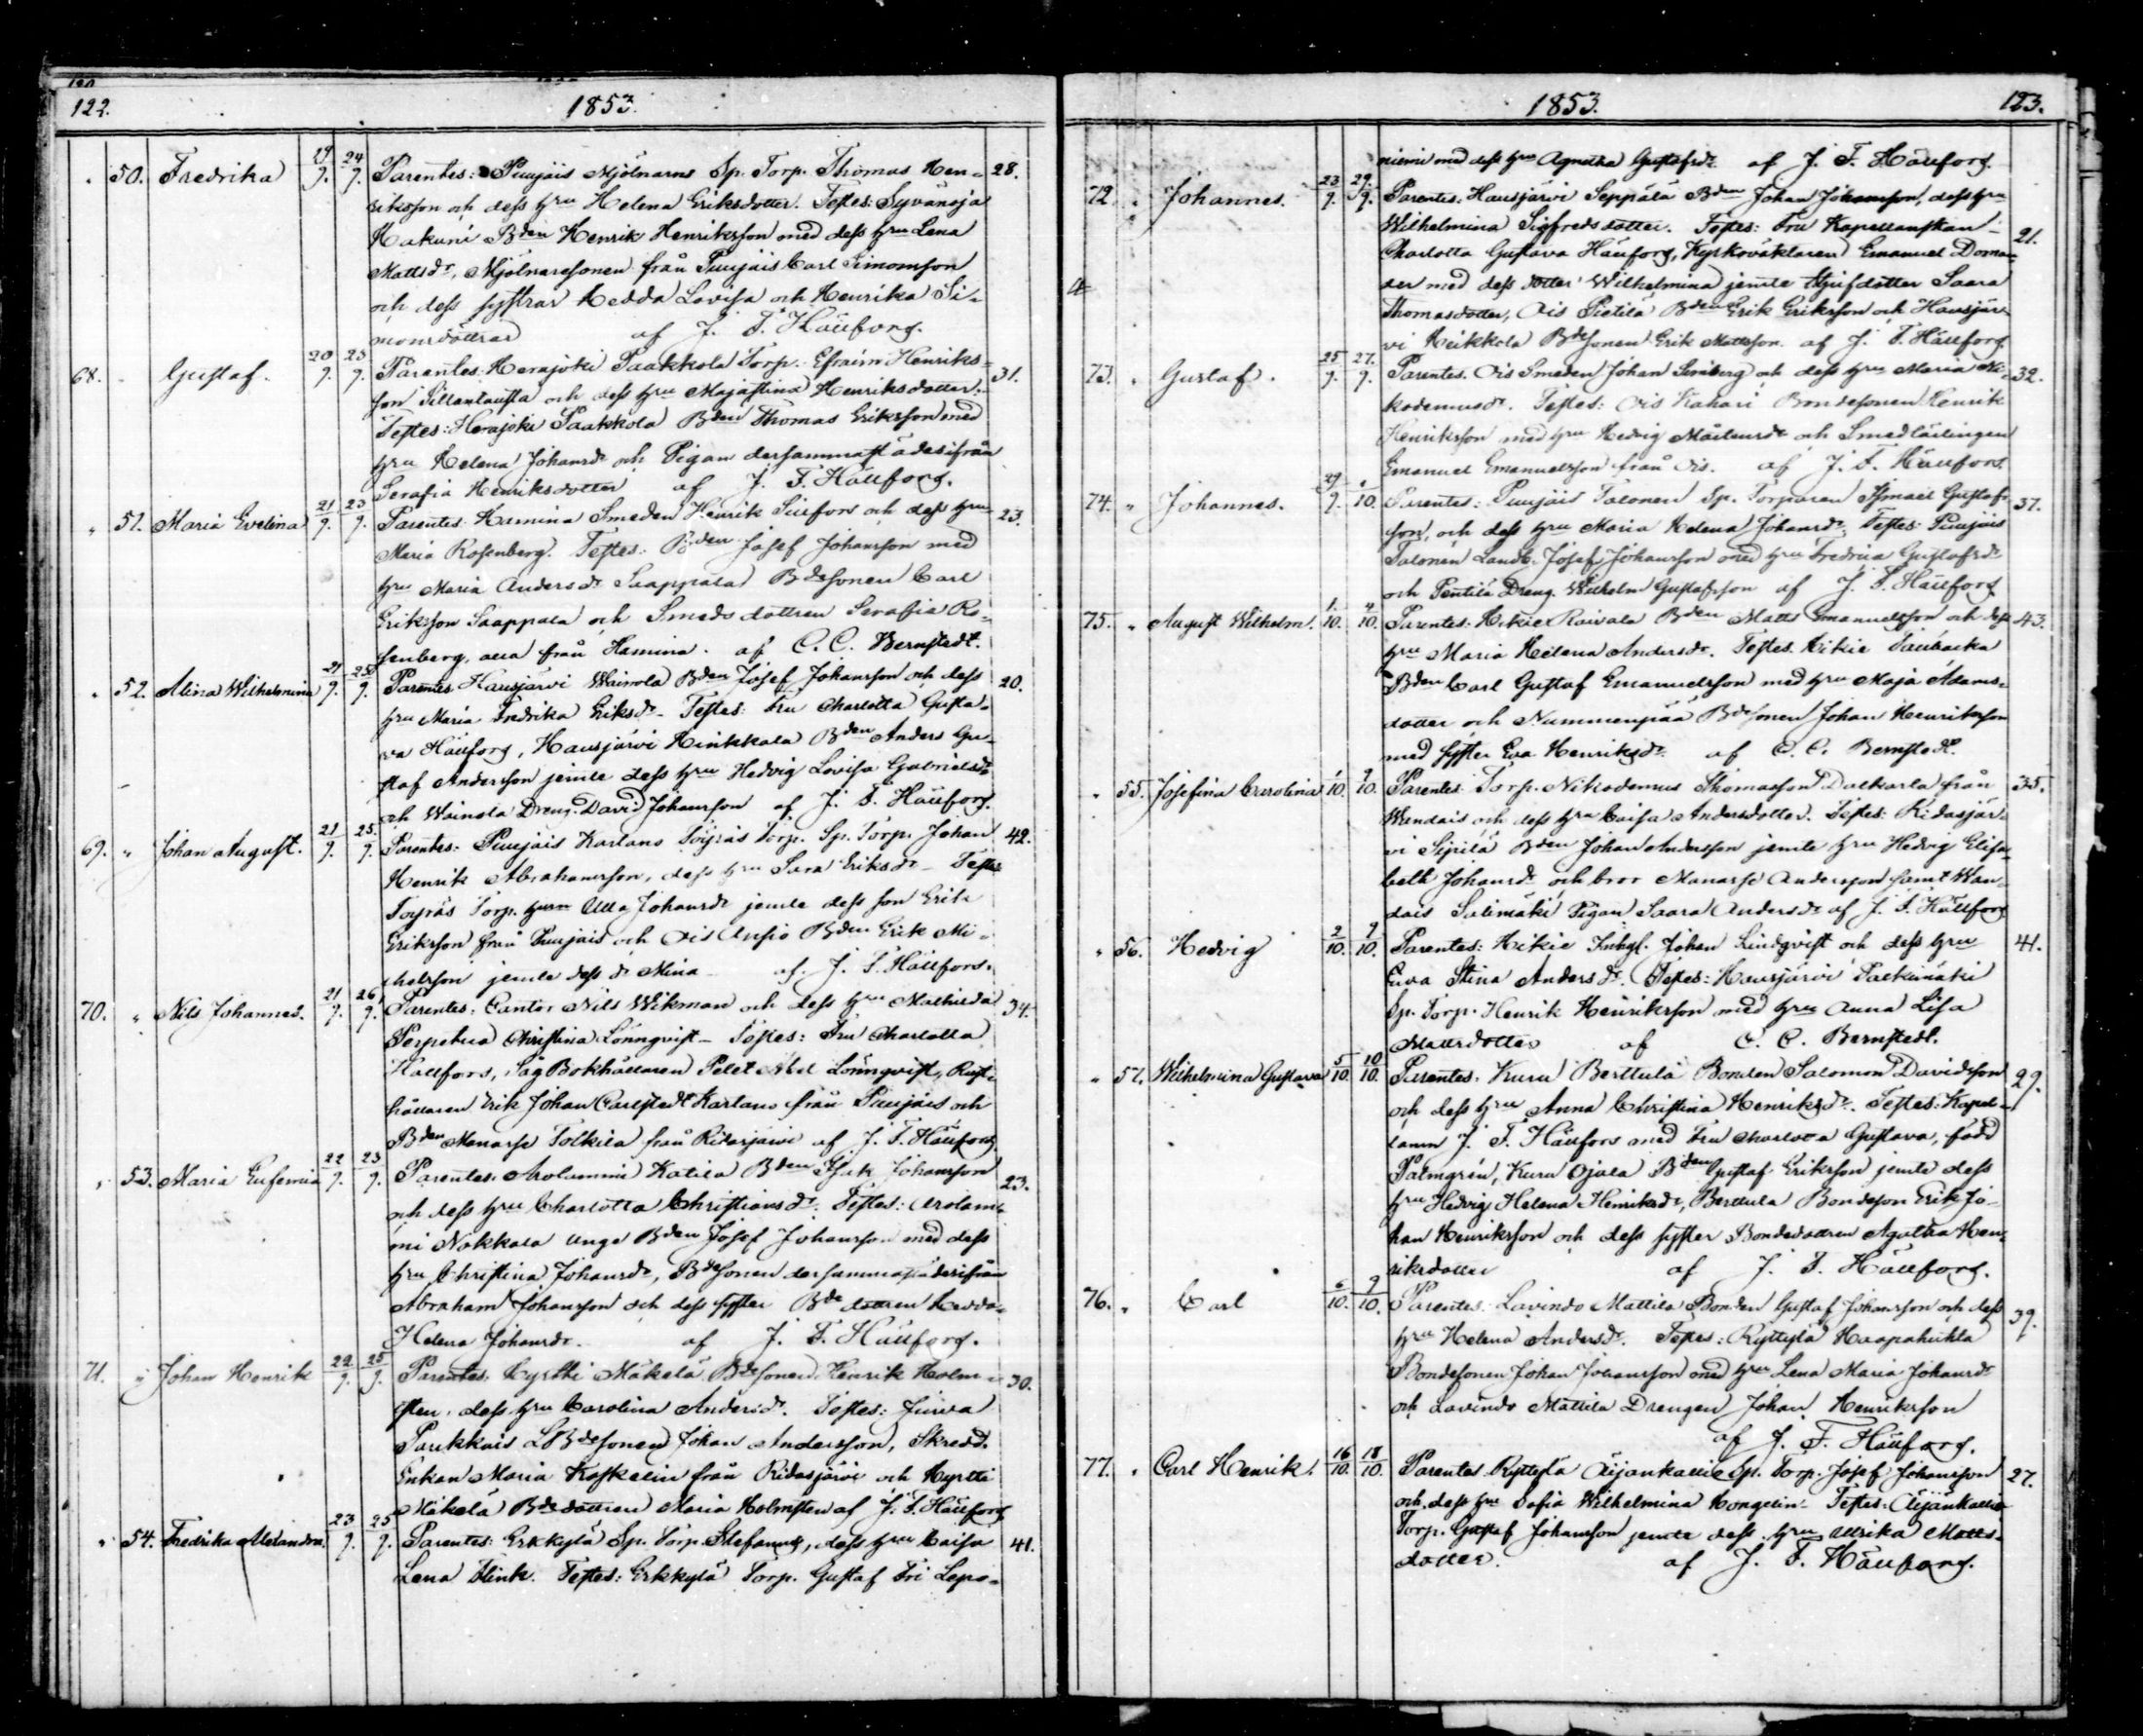 122. 1853.
" 50. Fredrika 19/9. 24/9. Parentes: Puujäis Mjölnarns Sp. Torp. Thomas Hen- 28.
riksson och dess hru Helena Eriksdotter. Testes: Syvänoja
Hakuni Bden Henrik Henriksson med dess hru Lena
Mattsdr, Mjölnaresonen från Puujäis Carl Simonsson
och dess systrar Hedda Lovisa och Henrika Si-
monsdöttrar af J. F. Hällfors.
68. " Gustaf. 20/9. 23/9. Parentes: Herajoki Paakkola Torp. Efraim Henriks- 31.
son Sillantausta och dess hru Majastina Henriksdotter.
Testes: Herajoki Paakkola Bden Thomas Eriksson med
hru Helena Johansdr och Pigan dersammastädesifrån
Serafia Henriksdotter af J. F. Hällfors.
" 51. Maria Evelina 21/9. 23/9. Parentes: Hamina Smeden Henrik Siirfors och dess hru 23.
Maria Rosenberg. Testes: Bden Josef Johansson med
hru Maria Andersdr Saappala Bdesonen Carl
Eriksson Saappala och Smedsdottren Serafia Ro-
senberg, alla från Hamina. af C. C. Bernstedt.
" 52. Alina Wilhelmina 21/9. 25/9. Parentes Hausjärvi Wainola Bden Josef Johansson och dess 20.
hru Maria Fredrika Eriksdr. Testes: Fru Charlotta Gusta-
va Hällfors, Hausjärvi Heikkala Bden Anders Gu-
staf Andersson jemte dess hru Hedvig Lovisa Gabrielsdr
och Wainola Dreng. David Johansson af J. F. Hällfors.
69. " Johan August. 21/9. 25/9. Parentes: Puujäis Kartano Töyräs Torp. Sp. Torp. Johan 42.
Henrik Abrahamsson, dess hru Sara Eriksdr Testes
Töyräs Torp. hrun Ulla Johansdr jemte dess son Erik
Eriksson från Puujäis och Ois Ansio Bden Erik Mi-
chelsson jemte dess dr Mina af J. F. Hällfors.
70. " Nils Johannes. 21/9. 26/9. Parentes: Cantor Nils Wikman och dess hru Mathilda 34.
Perpetua Christina Lönnqvist. Testes: Fru Charlotta
Hällfors, Såg Bokhållaren Abel Lönnqvist, Rust-
hållaren Erik Johan Carlstedt Kartano från Puujäis och
Bden Manasse Tolkila från Ridasjärvi af J. F. Hällfors.
" 53. Maria Eufemia 22/9. 23/9. Parentes: Arolammi Katila Bden Isak Johansson 23.
och dess hru Charlotta Christiansdr. Testes: Arolam-
mi Nokkala unge Bden Josef Johansson med dess
hru Christina Johansdr, Bdesonen dersammastädesifrån
Abraham Johansson och dess syster Bde dottren Hedda
Helena Johansdr. af J. F. Hällfors.
71. " Johan Henrik 22/9. 25/9. Parentes: Hyrtti Mäkelä Bdesonen Henrik Holm- 30.
sten, dess hru Carolina Andersdr. Testes:
Paukkais LBdesonen Johan Andersson, Skredd.
Enkan Maria Koskelin från Ridasjärvi och Hyrtti
Mäkelä Bdedottren Maria Holmsten af J. F. Hällfors
" 54. Fredrika Alexandra. 23/9. 25/9. Parentes: Erkkylä Sp. Torp. Stefanus, dess hru Caisa 41.
Lena Flink. Testes: Erkkylä Torp. Gustaf Fri Lepo-
1853. 123.
niemi med dess hru Agnetha Gustafsdr. af J. F. Hällfors.
72. " Johannes. 23/9. 29/9. Parentes: Hausjärvi Seppälä Bden Johan Johansson, dess hru
Wilhelmina Sigfredsdotter. Testes: Fru Kapellanskan 21.
Charlotta Gustava Hällfors, Kyrkoväktaren Emanuel Doman-
der med dess dotter Wilhelmina jemte Styfdotter Saara
Thomasdotter, Ois Pietilä Bden Erik Eriksson och Hausjär-
vi Heikkola Bdesonen Erik Mattsson. af J. F. Hällfors
73. " Gustaf. 25/9. 27/9. Parentes. Ois Smeden Johan och dess hru Maria Ni- 32.
kodemusdr. Testes: Ois Kahari Bondesonen Henrik
Henriksson med hru Hedvig och Smedlärlingen
Emanuel Emanuelsson från Ois. af J. F. Hällfors.
74. " Johannes. 29/9. 10. Parentes: Puujäis Talonen Sp. Torparen Ismael Gustaf- 37.
son, och dess hru Maria Helena Johansdr. Testes: Puujäis
Talonen Landb. Josef Johansson med hru Fredrica Gustafsdr
och Penttilä Dreng. Wilhelm Gustafsson af J. F. Hällfors
75. " August Wilhelm. 1/10. 4/10. Parentes: Hikie Raivala Bden Matts Emanuelsson och dess 43.
hru Maria Helena Andersdr. Testes. Hikie
Bden Carl Gustaf Emanuelsson med hru Maja Adams-
dotter och Nummenpää Bdesonen Johan Henriksson
med syster Eva Henriksdr. af C. C. Bernstedt.
" 55. Josefina Carolina 1/10. 9/10. Parentes Torp. Nikodemus Thomasson Dalkarla från 35.
Wandais och dess hru Caisa Andersdotter. Testes: Ridasjär-
vi Sipilä Bden Johan Andersson jemte hru Hedvig Elisa-
beth Johansdr och bror Manasse Andersson samt Wan-
dais Salimäki Pigan Saara Andersdr af J. F. Hällfors
" 56. Hedvig 2/10. 9/10. Parentes: Hikie Inhgl. Johan Lindqvist och dess hru 41.
Eva Stina Andersdr. Testes: Hausjärvi Palkimäki
Sp. Torp. Henrik Henriksson med hru Anna Lisa
Mattsdotter af C. C. Bernstedt.
" 57. Wilhelmina Gustava 5/10. 10/10. Parentes. Kuru Berttula Bonden Salomon Davidsson 29.
och dess hru Anna Christina Henriksdr. Testes: Kapel-
lanen J. F. Hällfors med Fru Charlotta Gustava, född
Palmgrén, Kuru Ojala Bden Gustaf Eriksson jemte dess
hru Hedvig Helena Henriksdr, Berttula Bondeson Erik Jo-
han Henriksson och dess syster Bondedottren Agatha Hen-
riksdotter af J. F. Hällfors.
76. " Carl 6/10. 9/10. Parentes: Lavindo Mattila Bonden Gustaf Johansson och dess 39.
hru Helena Andersdr. Testes: Ryttylä Haapahuhta
Bondesonen Johan Johansson med hru Lena Maria Johansdr
och Lavindo Mattila Drengen Johan Henriksson
af J. F. Hällfors.
77. " Carl Henrik. 16/10. 18/10. Parentes Ryttylä Äijänkallio Sp. Torp. Josef Johansson 27.
och dess hru Sofia Wilhelmina Kongelin. Testes: Äijänkallio
Torp. Gustaf Johansson jemte dess hru Ulrika Matts-
dotter. af J. F. Hällfors.